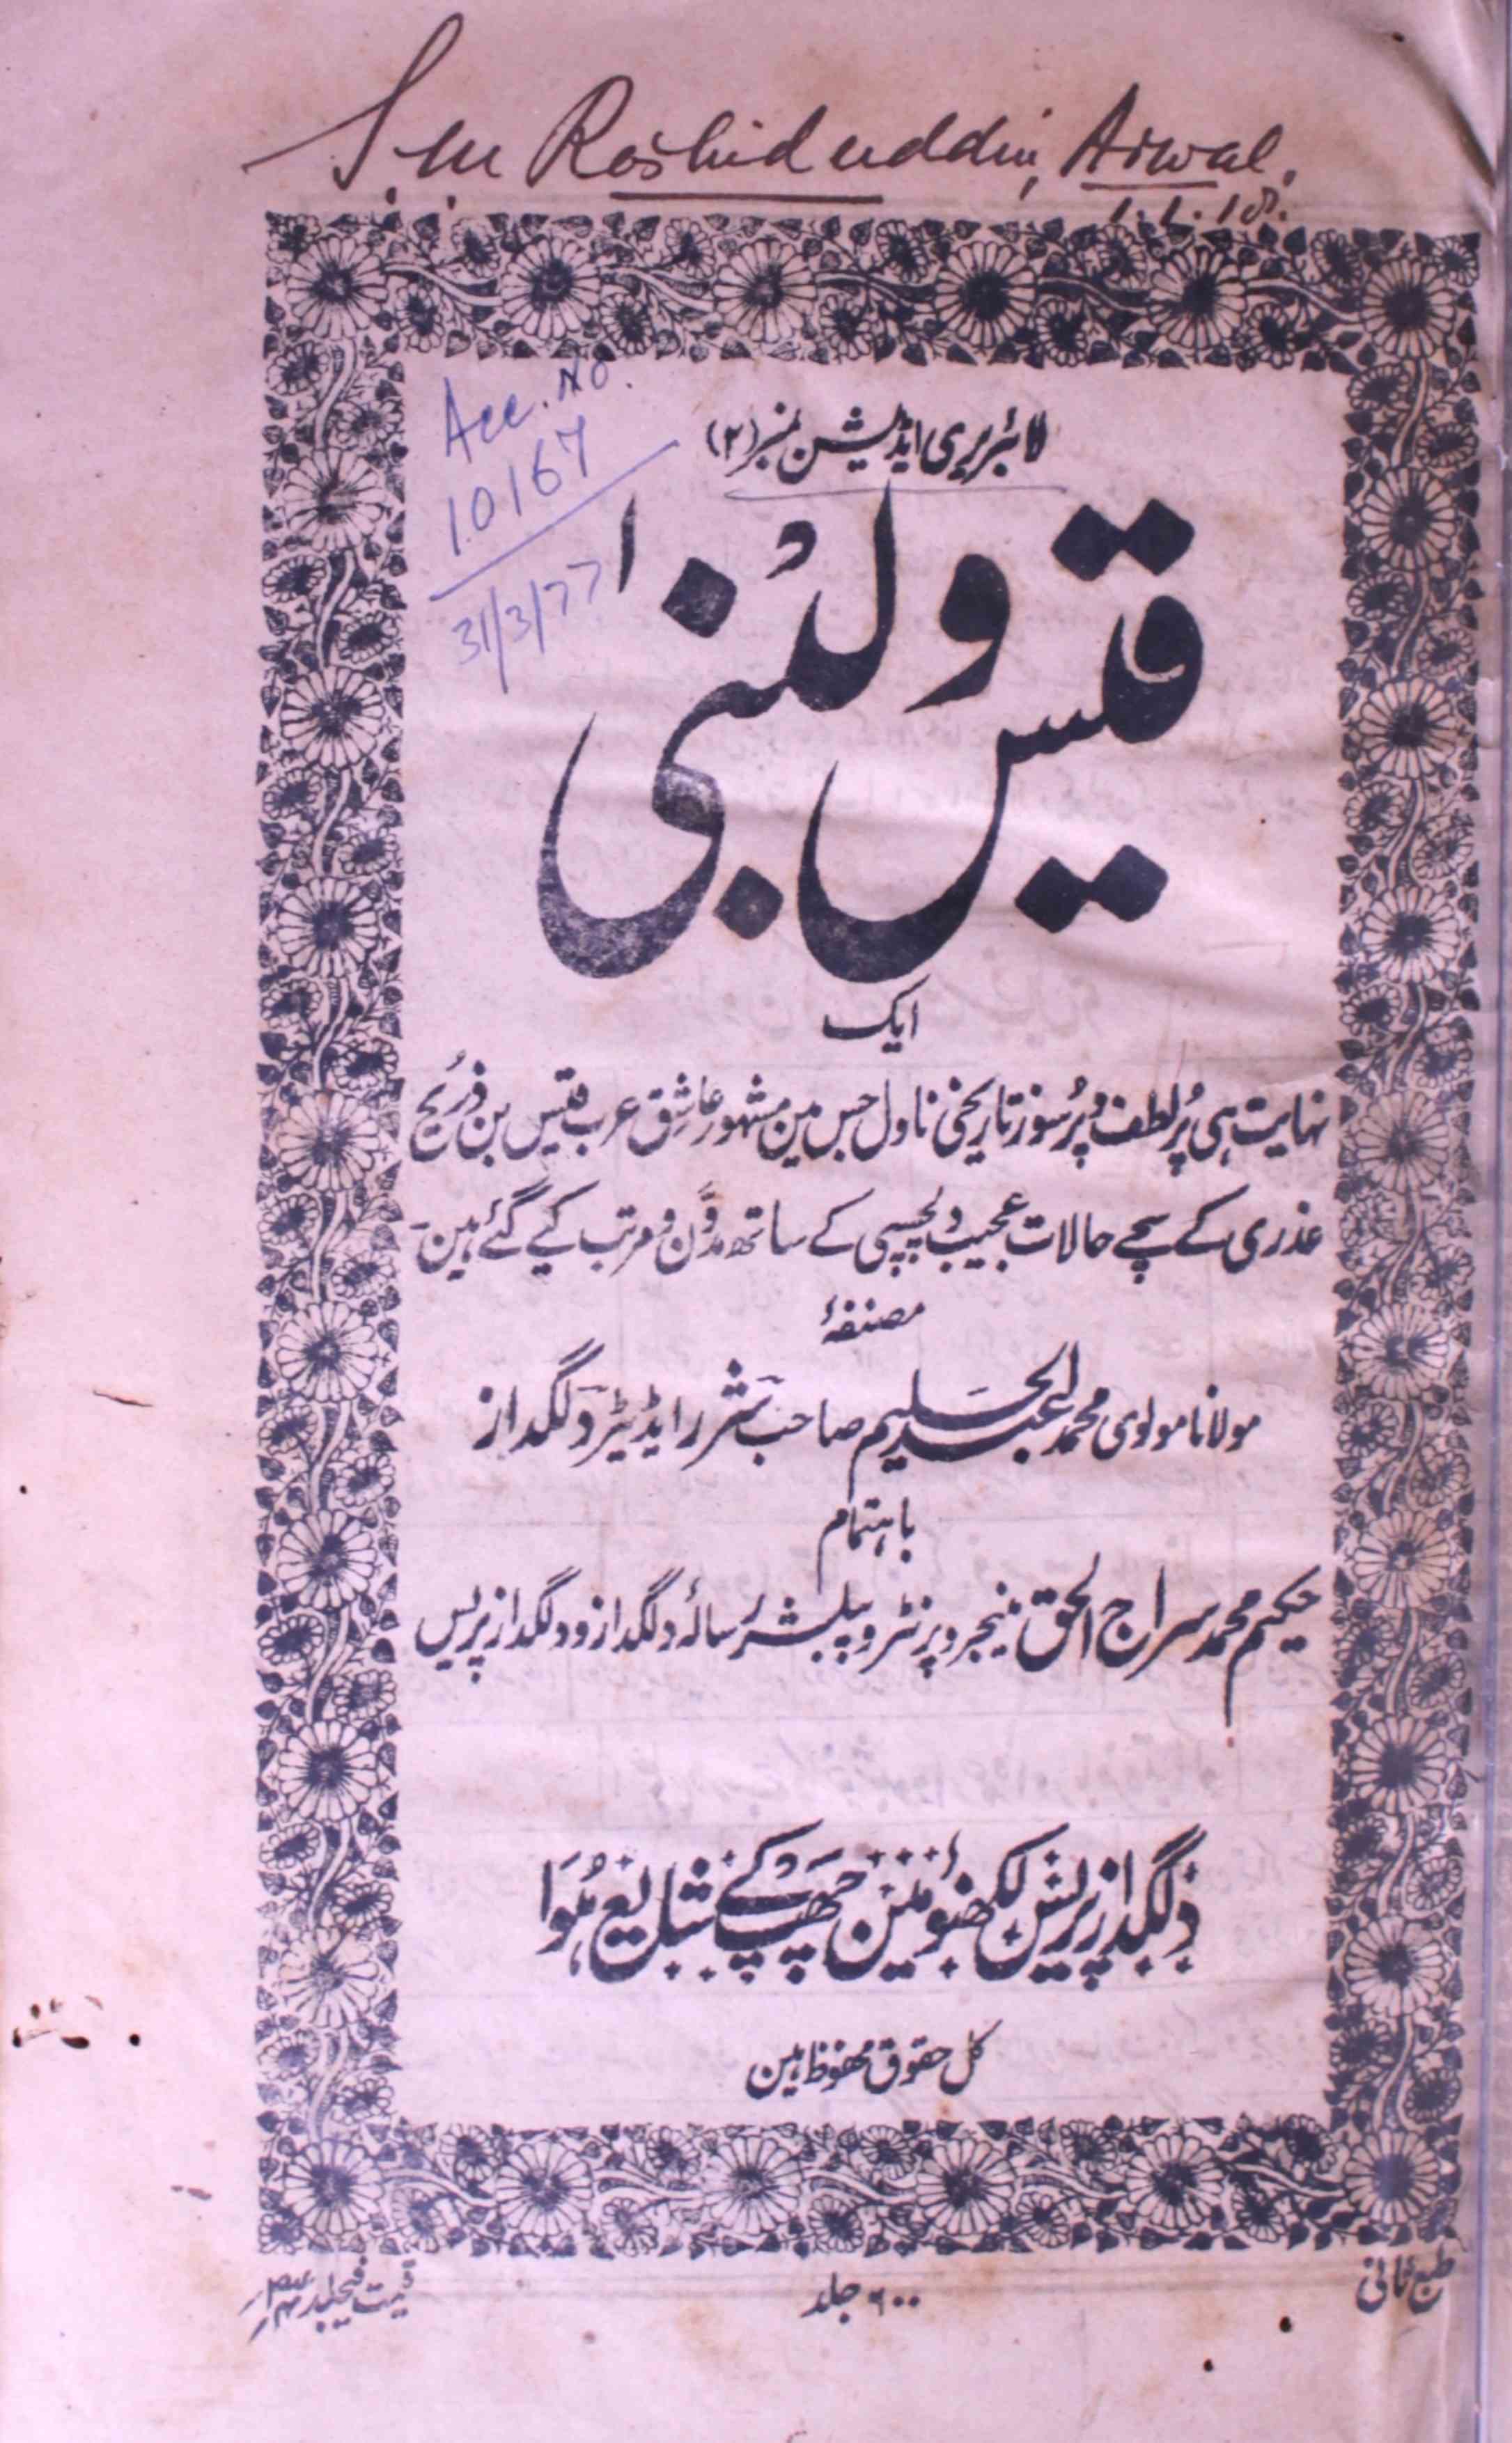 S. M. Rashiduddin, Arwal.
1.1.18.
Acc. No.
10167
31/3/77
لائبریری ایڈیشن نمبر (۲)
قیس و لُبنیٰ
ایک
نہایت ہی پُرلطف و پُرسوز تاریخی ناول جس مین مشہور عاشق عرب قیس بن ذریح
عذری کے سچے حالات عجیب دلچسپی کے ساتھ مدوَّن و مرتب کیے گئے ہین۔
مصنفۂ
مولانا مولوی محمد عبد الحلیم صاحب شرر ایڈیٹر دلگداز
باہتمام
حکیم محمد سراج الحق منیجر و پرنٹر و پبلشر رسالۂ دلگداز و دلگداز پریس
دلگداز پریس لکھنؤ مین چھپ کے شایع ہُوا
کل حقوق محفوظ ہین
طبع ثانی
۶۰۰ جلد
قیمت فیجلد